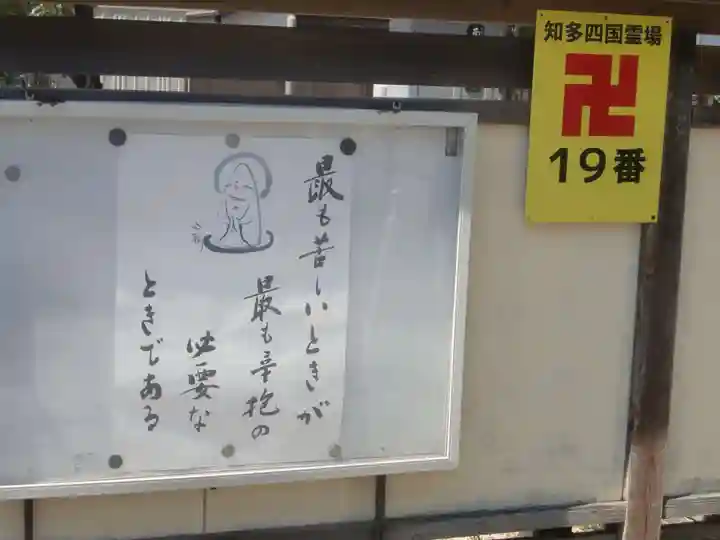 最も苦しいときが
最も辛抱の
必要な
ときである
知多四国霊場
卍
19番